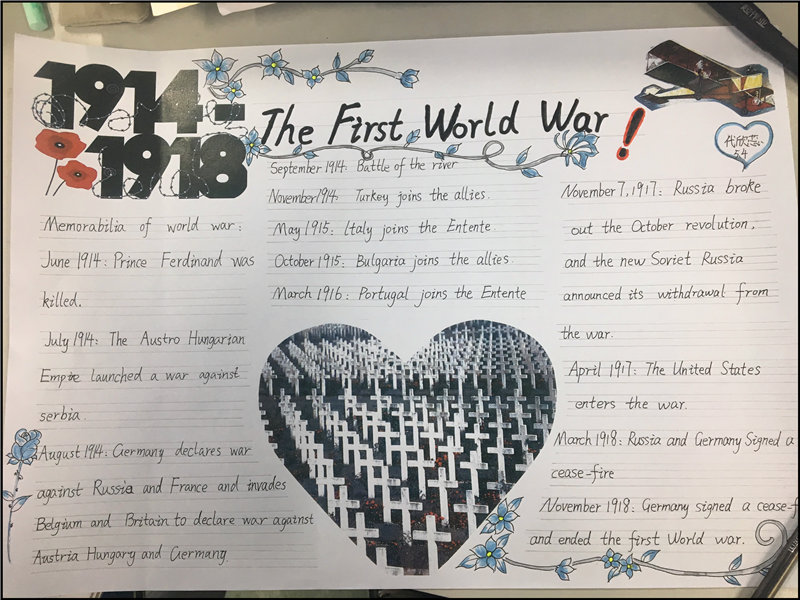 1914-
1918
The First World War!
代欣蕊
5.4
Memorabilia of world war:
June 1914: Prince Ferdinand was
killed.
July 1914: The Austro Hungarian
Empire launched a war against
serbia.
August 1914: Germany declares war
against Russia and France and invades
Belgium and Britain to declare war against
Austria Hungary and Germany.
September 1914: Battle of the river
November 1914: Turkey joins the allies.
May 1915: Italy joins the Entente.
October 1915: Bulgaria joins the allies.
March 1916: Portugal joins the Entente
November 7, 1917: Russia broke
out the October revolution,
and the new Soviet Russia
announced its withdrawal from
the war.
April 1917: The United States
enters the war.
March 1918: Russia and Germany Signed a
cease-fire
November 1918: Germany signed a cease-f
and ended the first World war.